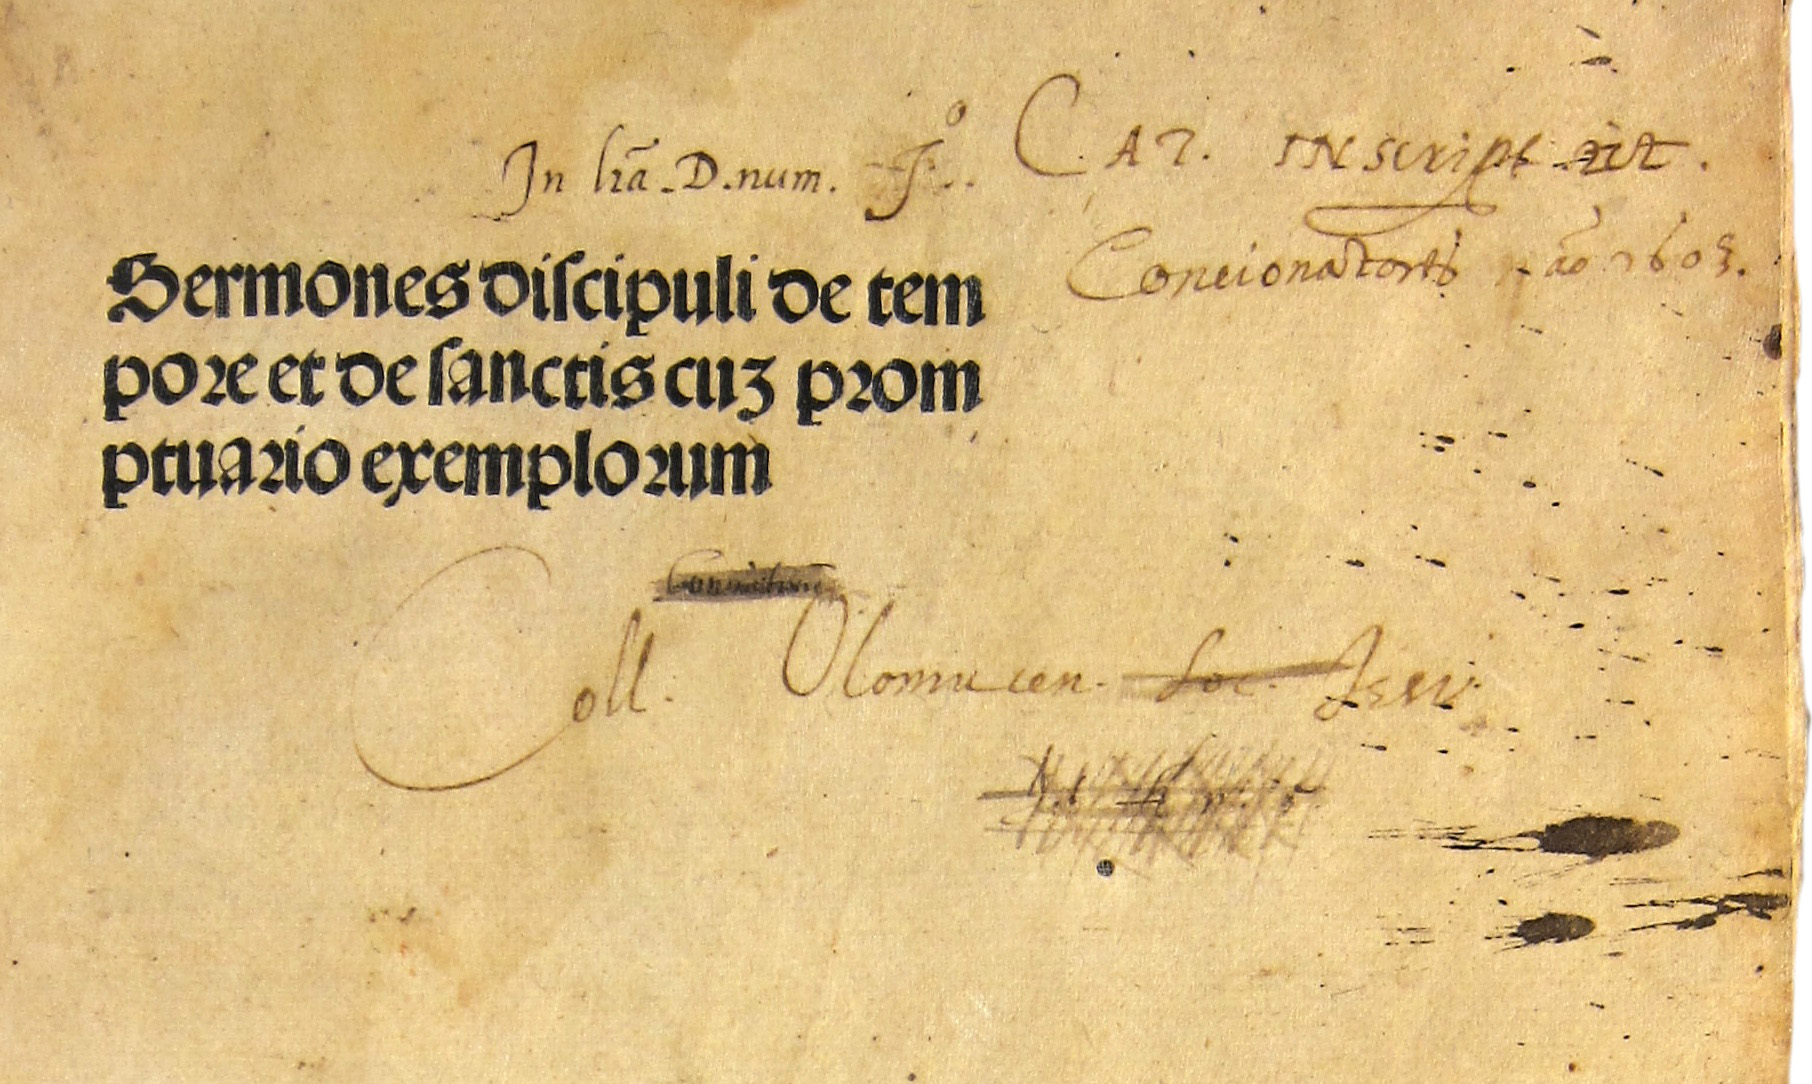 In lr̃a. D. num. J.º CAT. INscript
Concionatoris aō 1603.
Sermones diſcipuli de tem
pore et de ſanctis cuʒ prom
ptuario exemplorum
Coll. Olomucen. Soc. Jesu